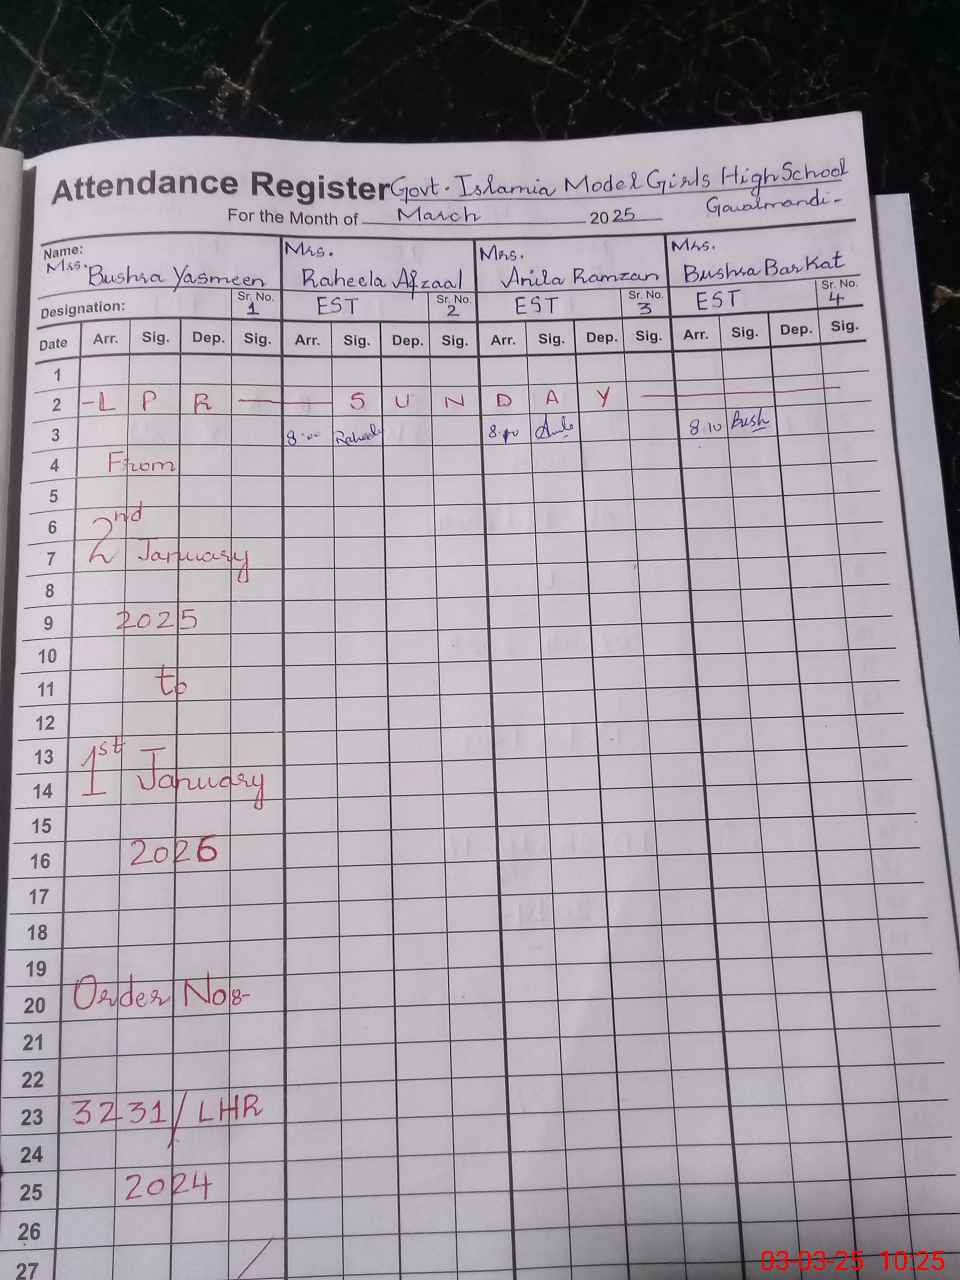 Attendance Register Govt. Islamia Model Girls High School
For the Month of March 2025 Gowalmandi-
Name: Mrs. Bushra Yasmeen Mrs. Raheela Afzaal Mrs. Anila Ramzan Mrs. Bushra Barkat
Designation: Sr. No. 1 EST Sr. No. 2 EST Sr. No. 3 EST Sr. No. 4
Date Arr. Sig. Dep. Sig. Arr. Sig. Dep. Sig. Arr. Sig. Dep. Sig. Arr. Sig. Dep. Sig.
1
2 -L P R — S U N D A Y —
3 8:00 Raheela 8:10 8:10 Bush
4 From
5
6 2nd
7 January
8
9 2025
10
11 to
12
13 1st
14 January
15
16 2026
17
18
19
20 Order No:-
21
22
23 3231/LHR
24
25 2024
26
27
03-03-25 10:25